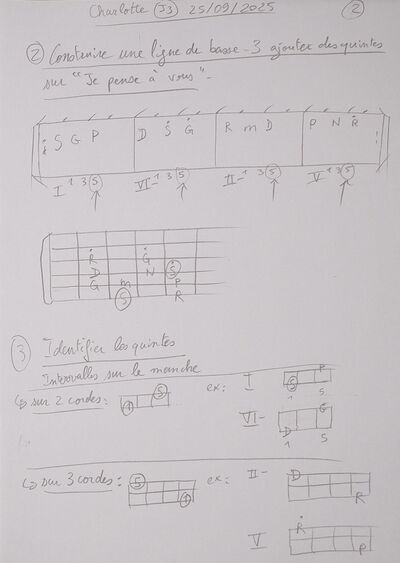 Charlotte (J3) 25/09/2025 (2)
② Construire une ligne de basse - 3 ajouter des quintes
sur "Je pense à vous" -
S G P D Ṡ Ġ R m D P N Ṙ
I 1 3 5 VI- 1 3 5 II- 1 3 5 V 1 3 5
Ṙ Ġ
D N Ṡ
G m P
S R
③ Identifier les quintes
Intervalles sur le manche
↳ sur 2 cordes: 1 5 ex: I S P
1 5
VI- D Ġ
1 5
↳ sur 3 cordes: 5 1 ex: II- D
R
V Ṙ
P